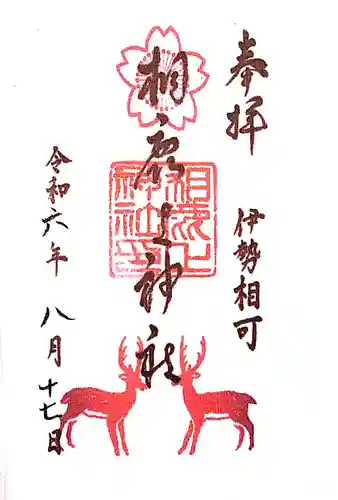 奉拝
伊勢相可
相鹿上神社
相鹿上神社印
令和六年 八月 十七日